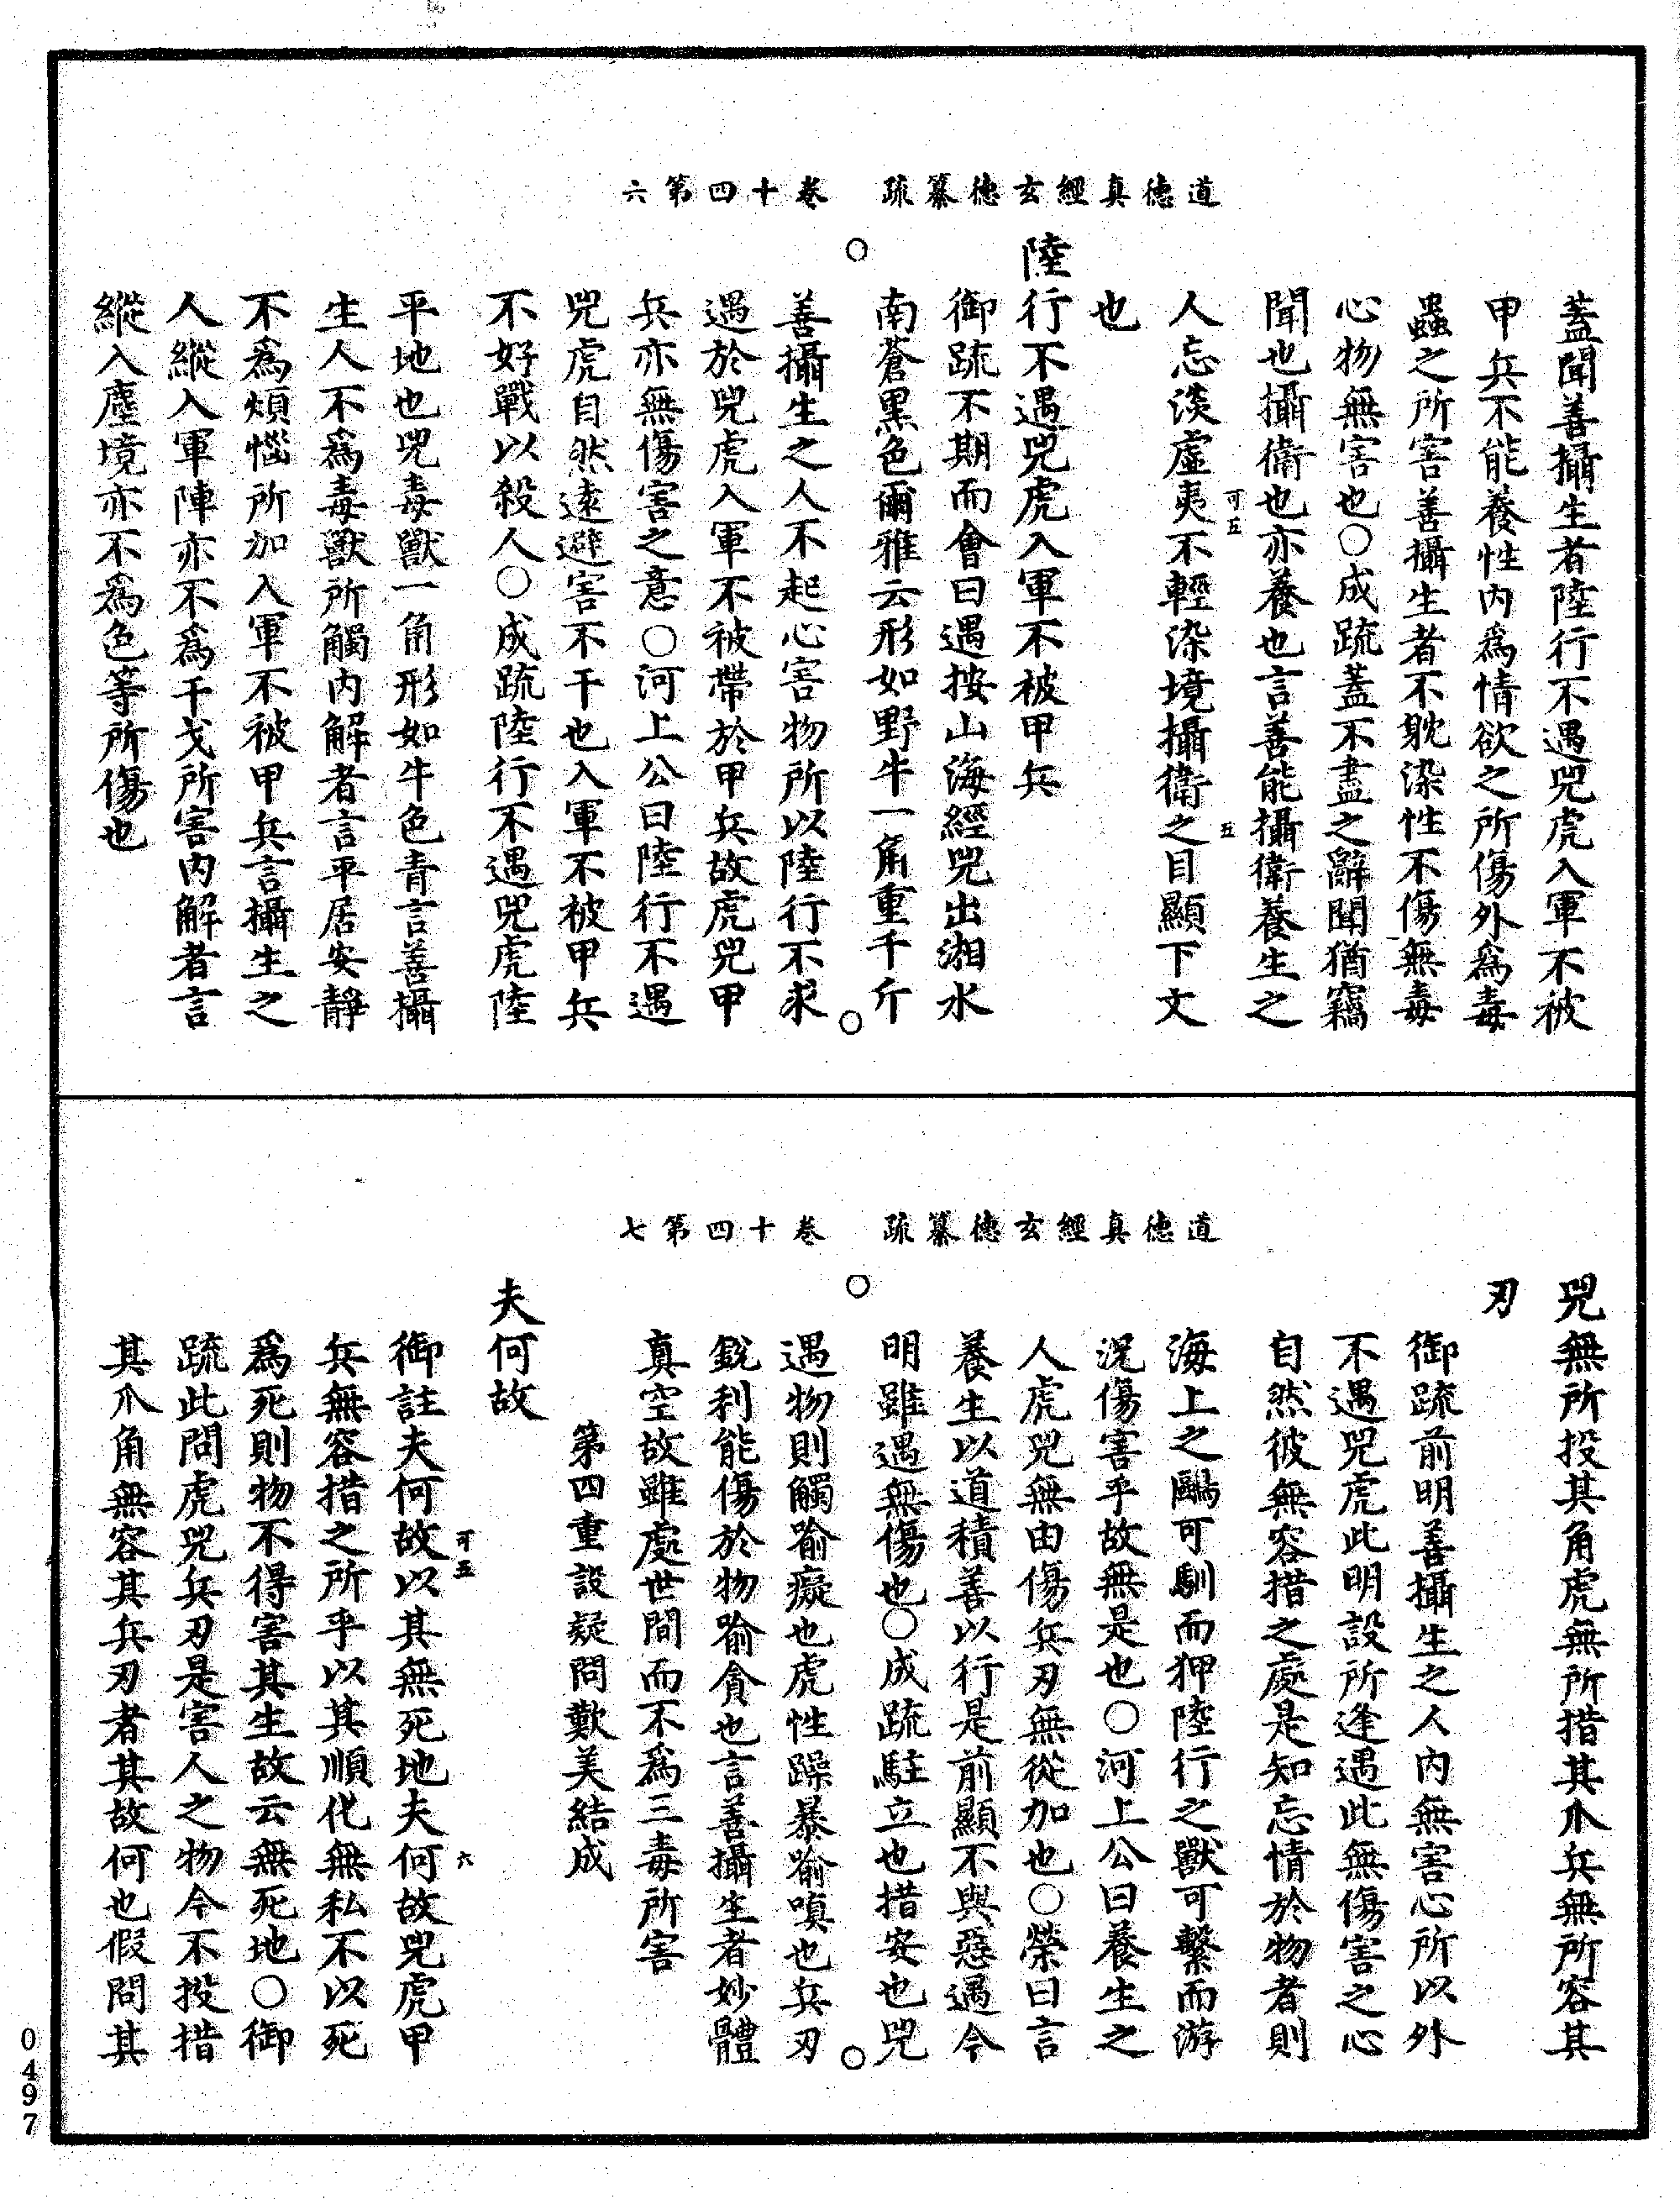 道德真經玄德纂疏　卷十四第六
蓋聞善攝生者陸行不遇兕虎入軍不被
甲兵不能養性內爲情欲之所傷外爲毒
蟲之所害善攝生者不躭染性不傷無毒
心物無害也○成疏蓋不盡之辭聞猶竊
聞也攝衛也亦養也言善能攝衛養生之
可五
人忘淡虛夷不輕染境攝衛之目顯下文
五
也
陸行不遇兕虎入軍不被甲兵
御疏不期而會曰遇按山海經兕出湘水
南蒼黑色爾雅云形如野牛一角重千斤
善攝生之人不起心害物所以陸行不求
遇於兕虎入軍不被帶於甲兵故虎兕甲
兵亦無傷害之意○河上公曰陸行不遇
兕虎自然遠避害不干也入軍不被甲兵
不好戰以殺人○成疏陸行不遇兕虎陸
平地也兕毒獸一角形如牛色青言善攝
生人不爲毒獸所觸內解者言平居安靜
不爲煩惱所加入軍不被甲兵言攝生之
人縱入軍陣亦不爲干戈所害內解者言
縱入塵境亦不爲色等所傷也
道德真經玄德纂疏　卷十四第七
兕無所投其角虎無所措其爪兵無所容其
刃
御疏前明善攝生之人內無害心所以外
不遇兕虎此明設所逢遇此無傷害之心
自然彼無容措之處是知忘情於物者則
海上之鷗可馴而狎陸行之獸可繫而游
況傷害乎故無是也○河上公曰養生之
人虎兕無由傷兵刃無從加也○榮曰言
養生以道積善以行是前顯不與惡遇今
明雖遇無傷也○成疏駐立也措安也兕
遇物則觸喻癡也虎性躁暴喻嗔也兵刃
銳利能傷於物喻貪也言善攝生者妙體
真空故雖處世間而不爲三毒所害
第四重設疑問歎美結成
夫何故
御註夫何故以其無死地夫何故兕虎甲
可五
六
兵無容措之所乎以其順化無私不以死
爲死則物不得害其生故云無死地○御
疏此問虎兕兵刃是害人之物今不投措
其爪角無容其兵刃者其故何也假問其
0497